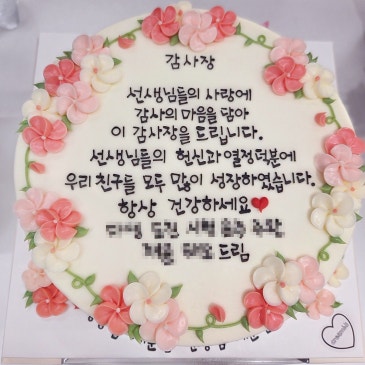 감사장
선생님들의 사랑에
감사의 마음을 담아
이 감사장을 드립니다.
선생님들의 헌신과 열정덕분에
우리 친구들 모두 많이 성장하였습니다.
항상 건강하세요❤
드림